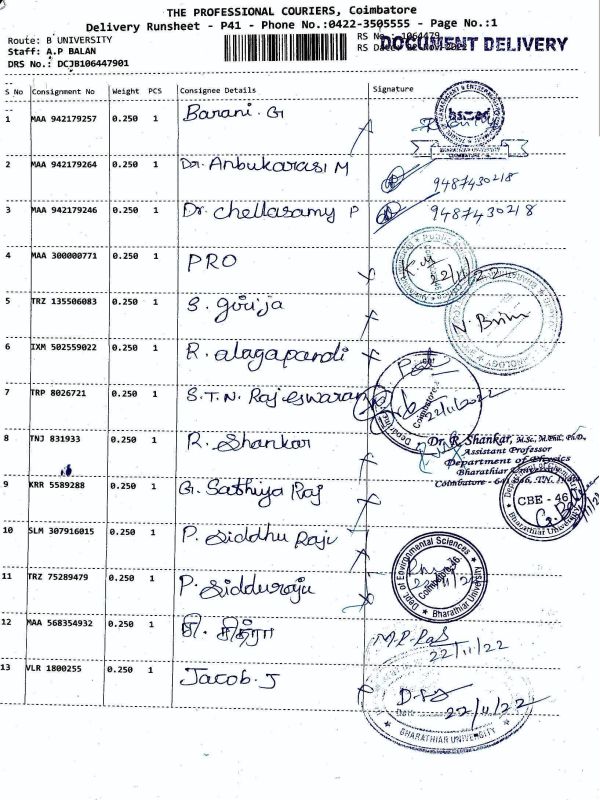 THE PROFESSIONAL COURIERS, Coimbatore
Delivery Runsheet - P41 - Phone No.:0422-3505555 - Page No.:1
Route: B UNIVERSITY
Staff: A.P BALAN
DRS No.: DCJB106447901
RS No.: 1064479
RS Date:
DOCUMENT DELIVERY
S No Consignment No Weight PCS Consignee Details Signature
1 MAA 942179257 0.250 1 Barani. G
2 MAA 942179264 0.250 1 Dr. Anbukarasi M 9487430218
3 MAA 942179246 0.250 1 Dr. Chellasamy P 9487430218
4 MAA 300000771 0.250 1 PRO 22/11/22
5 TRZ 135506083 0.250 1 S. girija
6 IXM 502559022 0.250 1 R. alagapandi
7 TRP 8026721 0.250 1 S.T.N. Rajeswaran Coimbatore 22/11/2022
8 TNJ 831933 0.250 1 R. Shankar
Dr. R. Shankar, M.Sc., M.Phil., Ph.D.,
Assistant Professor
Department of Physics
Bharathiar University
Coimbatore - 641 046, T.N. India
9 KRR 5589288 0.250 1 G. Sathiya Raj
CBE - 46
Bharathiar University
10 SLM 307916015 0.250 1 P. Siddhu Raji
Dept. of Environmental Sciences
Coimbatore-46.
Bharathiar University
11 TRZ 75289479 0.250 1 P. Sidduraju 22/11/22
12 MAA 568354932 0.250 1 சி. சித்ரா
22/11/22
13 VLR 1800255 0.250 1 Jacob. J
22/11/22
BHARATHIAR UNIVERSITY